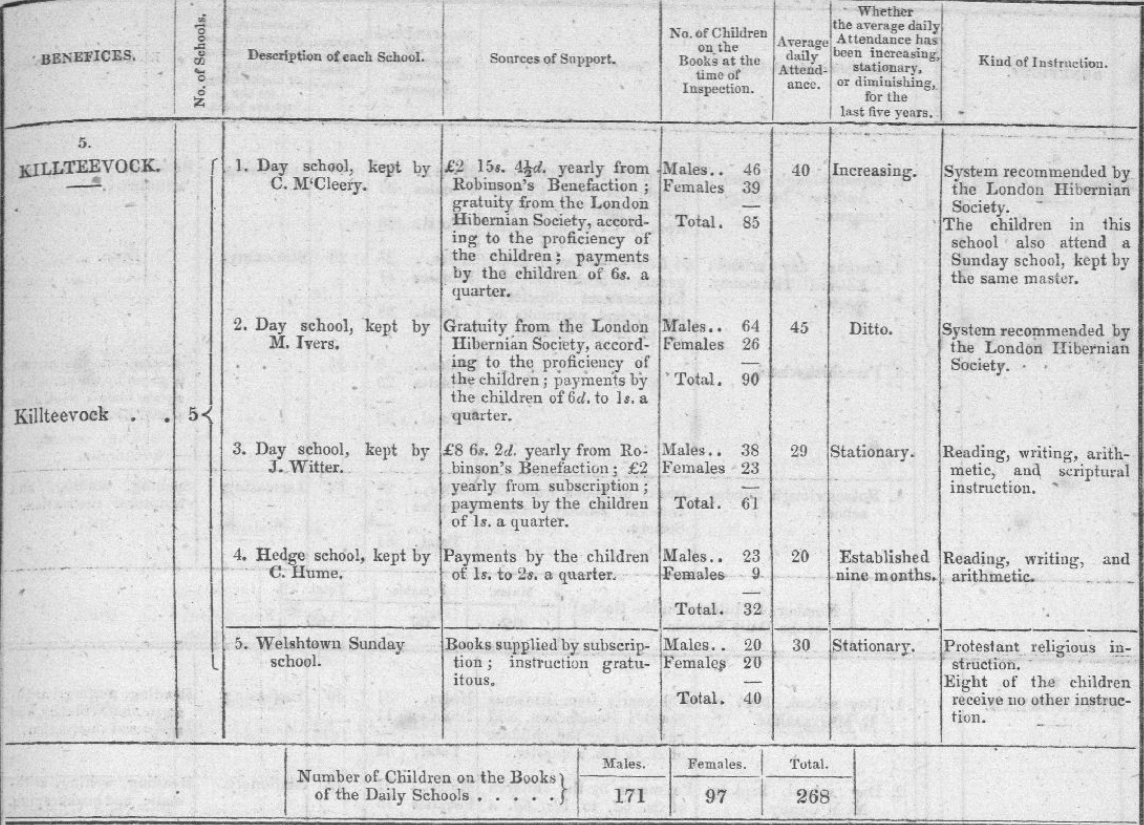 BENEFICES.
No. of Schools.
Description of each School.
Sources of Support.
No. of Children
on the
Books at the
time of
Inspection.
Average
daily
Attend-
ance.
Whether
the average daily
Attendance has
been increasing,
stationary,
or diminishing,
for the
last five years.
Kind of Instruction.
5.
KILLTEEVOCK.
Killteevock . . 5
1. Day school, kept by
C. M'Cleery.
£2 15s. 4½d. yearly from
Robinson's Benefaction;
gratuity from the London
Hibernian Society, accord-
ing to the proficiency of
the children; payments
by the children of 6s. a
quarter.
Males.. 46
Females 39
Total. 85
40
Increasing.
System recommended by
the London Hibernian
Society.
The children in this
school also attend a
Sunday school, kept by
the same master.
2. Day school, kept by
M. Ivers.
Gratuity from the London
Hibernian Society, accord-
ing to the proficiency of
the children; payments by
the children of 6d. to 1s. a
quarter.
Males.. 64
Females 26
Total. 90
45
Ditto.
System recommended by
the London Hibernian
Society.
3. Day school, kept by
J. Witter.
£8 6s. 2d. yearly from Ro-
binson's Benefaction; £2
yearly from subscription;
payments by the children
of 1s. a quarter.
Males.. 38
Females 23
Total. 61
29
Stationary.
Reading, writing, arith-
metic, and scriptural
instruction.
4. Hedge school, kept by
C. Hume.
Payments by the children
of 1s. to 2s. a quarter.
Males.. 23
Females 9
Total. 32
20
Established
nine months.
Reading, writing, and
arithmetic.
5. Welshtown Sunday
school.
Books supplied by subscrip-
tion; instruction gratu-
itous.
Males.. 20
Females 20
Total. 40
30
Stationary.
Protestant religious in-
struction.
Eight of the children
receive no other instruc-
tion.
Number of Children on the Books
of the Daily Schools . . . . .
Males. Females. Total.
171 97 268